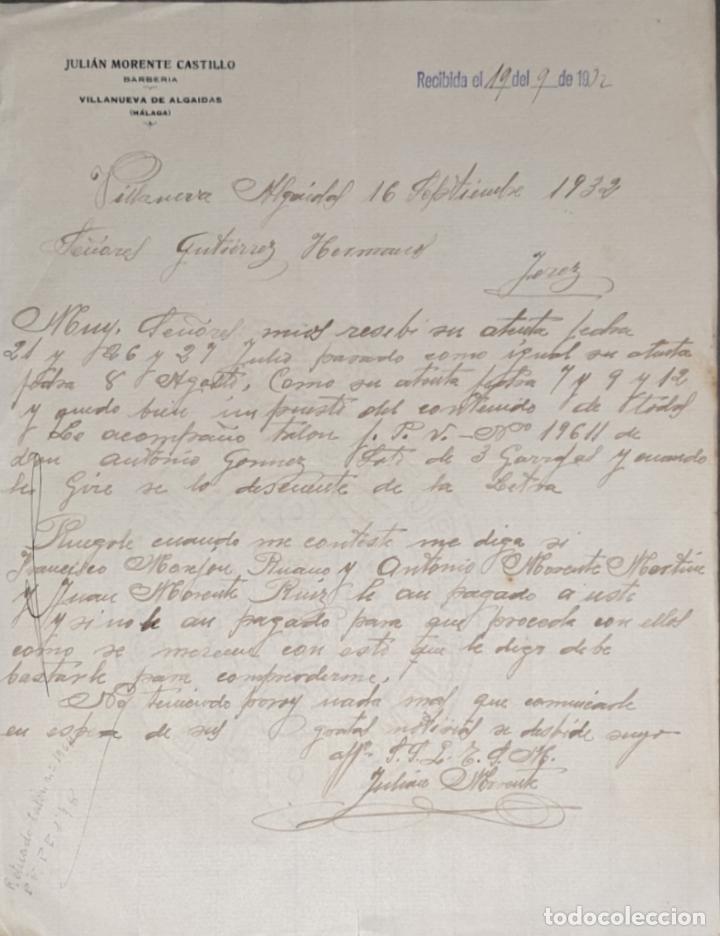 JULIÁN MORENTE CASTILLO
BARBERIA
VILLANUEVA DE ALGAIDAS
(MÁLAGA)
Recibida el 19 del 9 de 1932
Villanueva Algaidas 16 Septiembre 1932
Señores Gutiérrez Hermanos
Jerez
Muy Señores mios recibi su atenta fecha
21 y 26 y 27 Julio pasado como igual su atenta
fecha 8 Agosto, Como su atenta fecha 7 y 9 y 12
y quedo bien impuesto del contenido de todas
Le acompaño talon p. P. V. - Nº 19611 de
don Antonio Gomez de 3 Garrafas y cuando
le Gire se lo descuente de la Letra
Ruegole cuando me conteste me diga si
Francisco Monjon Ruano y Antonio Morente Martin
y Juan Morente Ruiz le an pagado a uste
y si no le an pagado para que proceda con ellos
como se merecen con esto que le digo debe
bastarle para comprederme,
No teniendo por oy nada mas que comunicarle
en espera de sus gratas noticias se despide suyo
affº. S. S. Q. E. S. M.
Julian Morente
todocoleccion